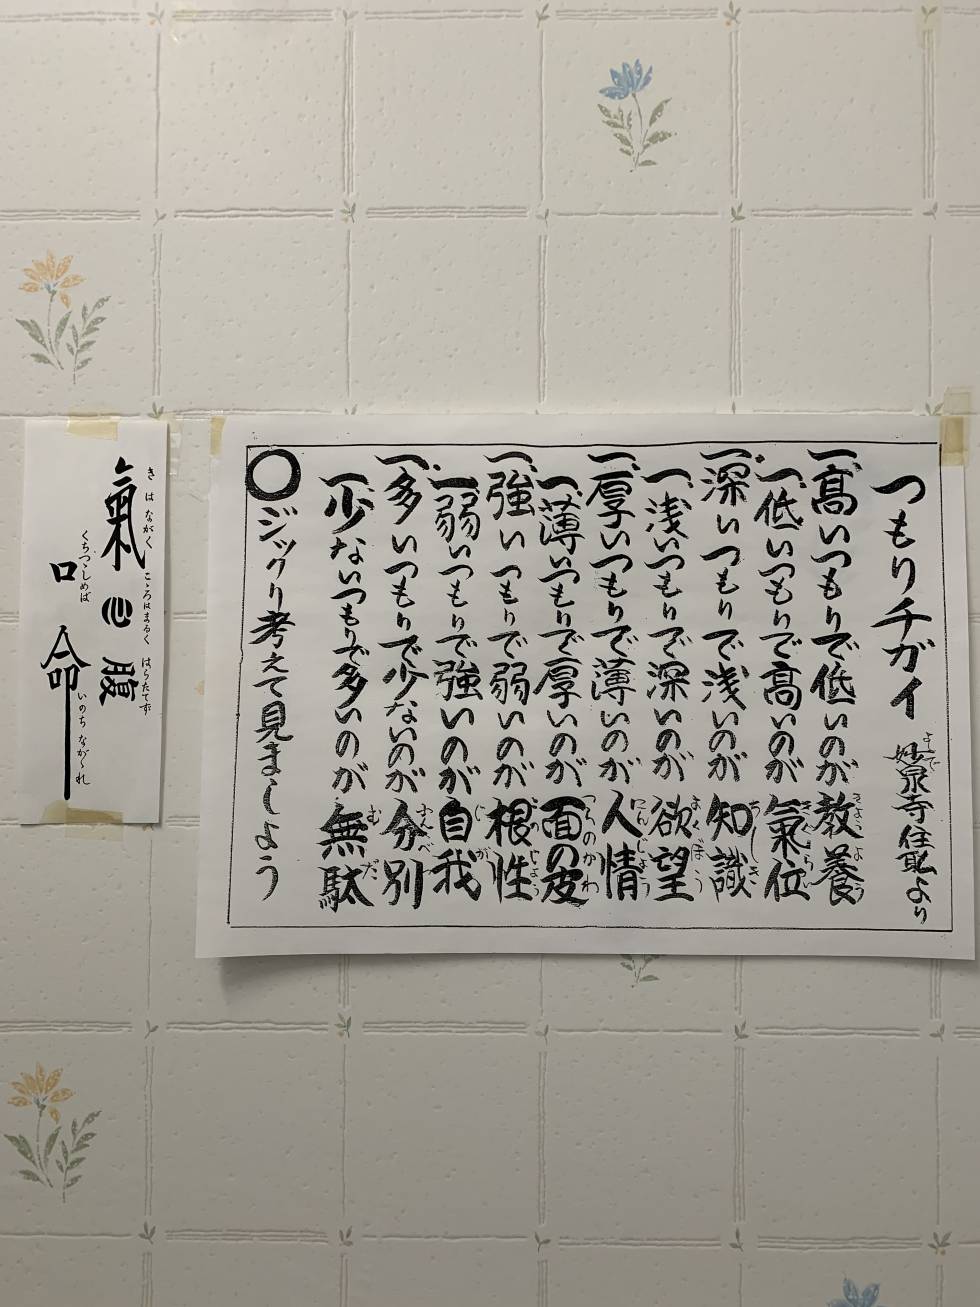 つもりチガイ
よしで
妙泉寺住職より
一、高いつもりで低いのが教養
きょうよう
一、低いつもりで高いのが氣位
きぐらい
一、深いつもりで浅いのが知識
ちしき
一、浅いつもりで深いのが欲望
よくぼう
一、厚いつもりで薄いのが人情
にんじょう
一、薄いつもりで厚いのが面の皮
つらのかわ
一、強いつもりで弱いのが根性
こんじょう
一、弱いつもりで強いのが自我
じが
一、多いつもりで少ないのが分別
ふんべつ
一、少ないつもりで多いのが無駄
むだ
○ジックリ考えて見ましよう
氣心腹
きはながく
こゝろはまるく
はらたてず
口
くちつゝしめば
命
いのちながゝれ